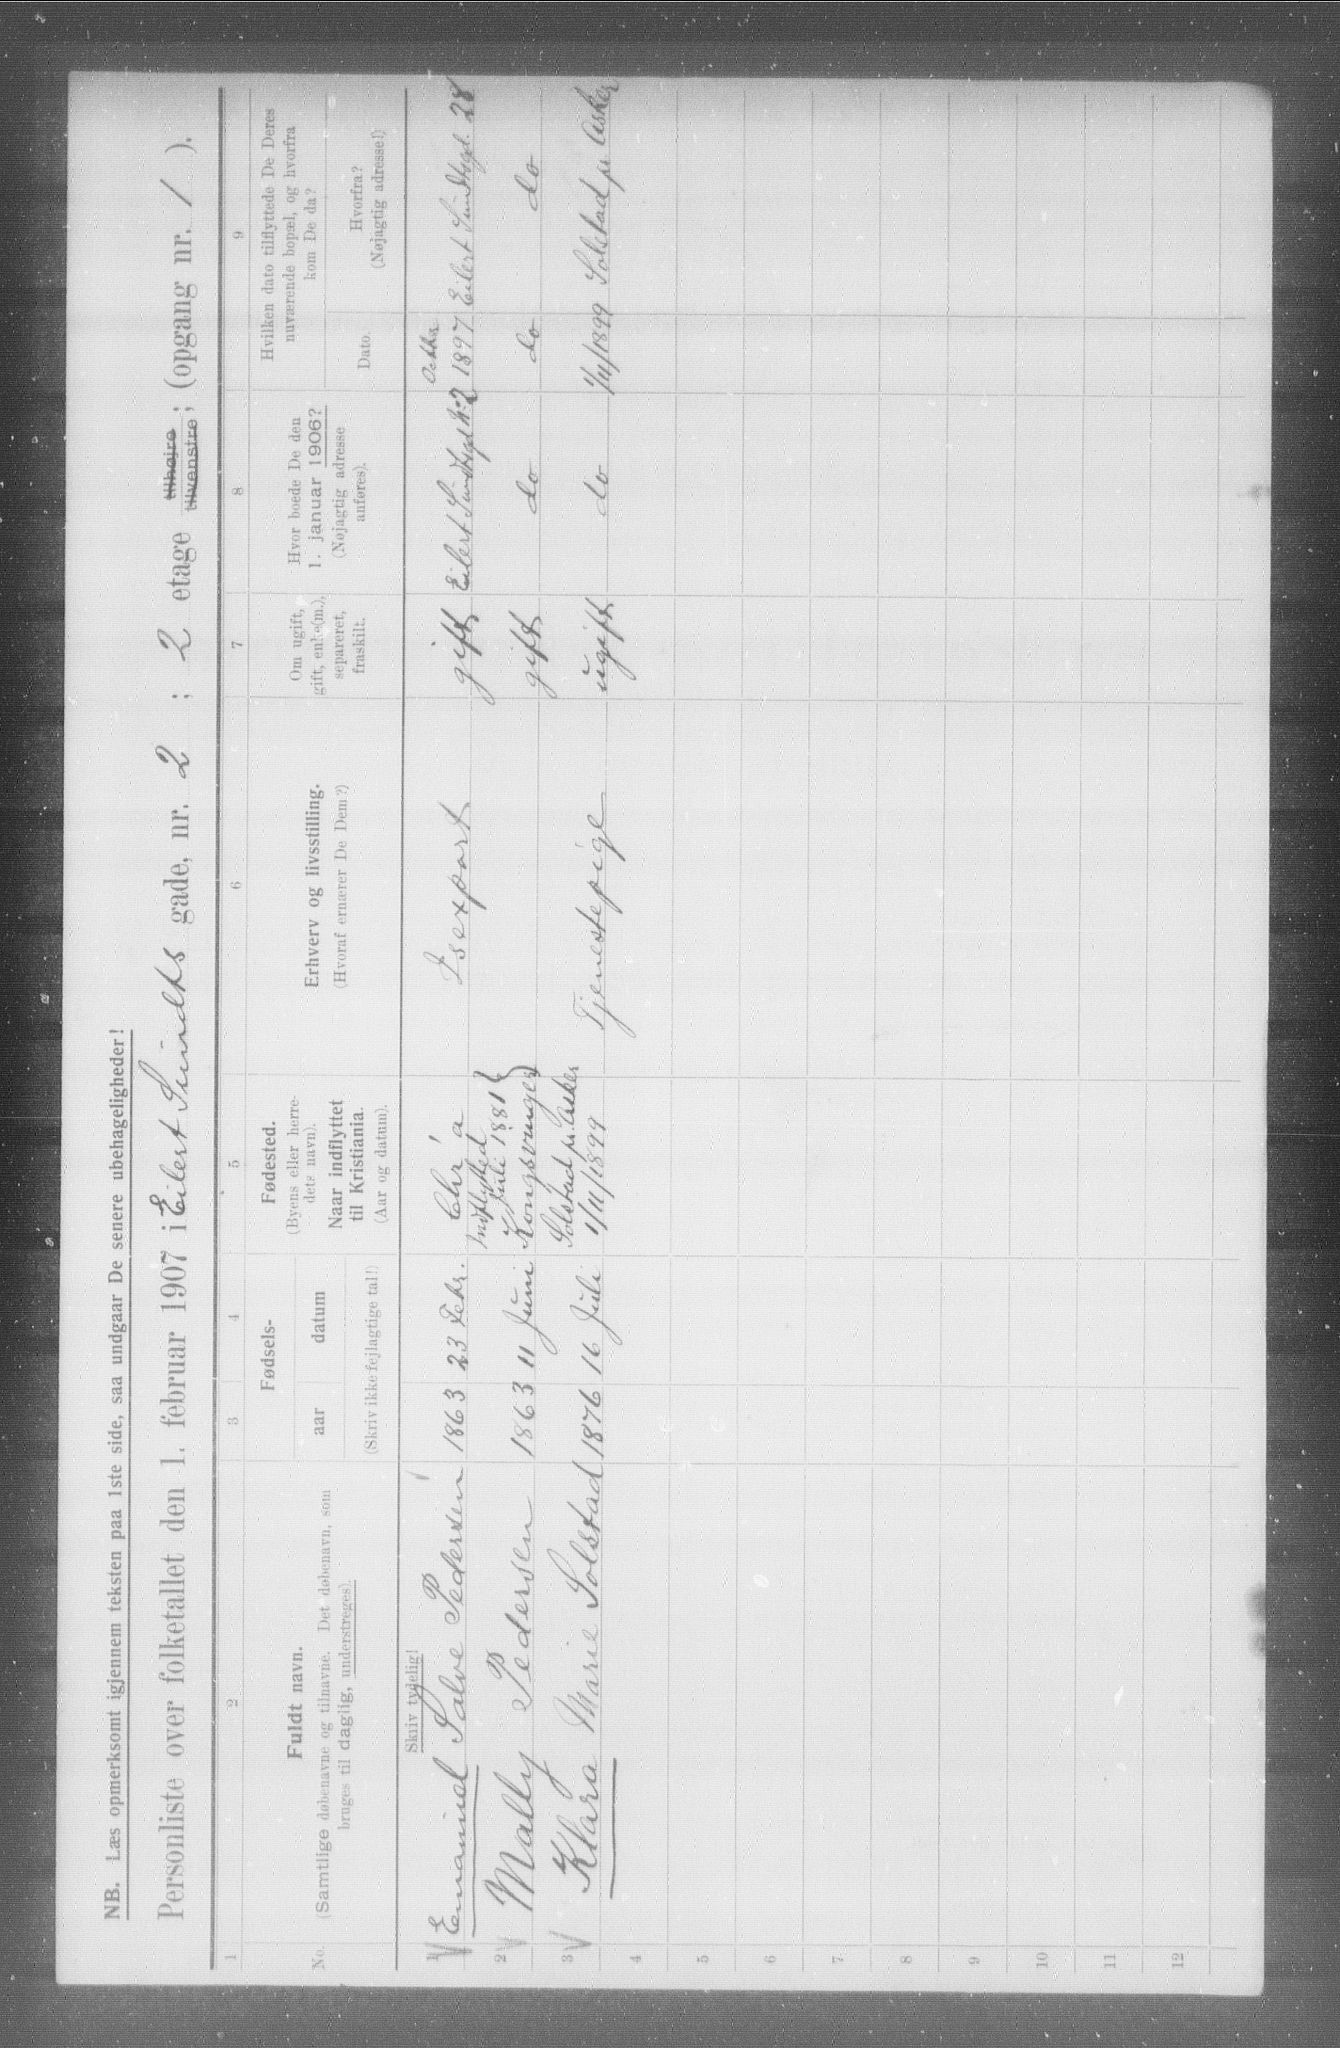 NB. Læs opmerksomt igjennem teksten paa 1ste side, saa undgaar De senere ubehageligheder!
Personliste over folketallet den 1. februar 1907 i Eilert Sundts gade, nr. 2 ; 2 etage tilhøjre tilvenstre; (opgang nr. 1 ).
1 2 3 4 5 6 7 8 9
No.
Fuldt navn.
(Samtlige døbenavne og tilnavne. Det døbenavn, som
bruges til daglig, understreges).
Fødsels-
aar datum
(Skriv ikke fejlagtige tal!)
Fødested.
(Byens eller herre-
dets navn).
Naar indflyttet
til Kristiania.
(Aar og datum).
Erhverv og livsstilling.
(Hvoraf ernærer De Dem?)
Om ugift,
gift, enke(m.),
separeret,
fraskilt.
Hvor boede De den
1. januar 1906?
(Nøjagtig adresse
anføres).
Hvilken dato tilflyttede De Deres
nuværende bopæl, og hvorfra
kom De da?
Dato.
Hvorfra?
(Nøjagtig adresse!)
Skriv tydelig!
1 Emanuel Salve Pedersen 1863 23 Febr. Chr a Isexport gift Eilert Sundtsgd. No 2 Octbr 1897 Eilert Sundtsgd. 28
2 Mally Pedersen 1863 11 Juni Indflytted Juli 1881 Kongsvinger gift do do do
3 Klara Marie Solstad 1876 16 Juli Solstad pr. Asker 1/11/1899 Tjenestepige ugift do 1/11/1899 Solstad pr Asker
4
5
6
7
8
9
10
11
12